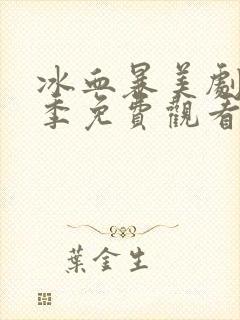 冰血暴美劇
季免費觀看
葉金生